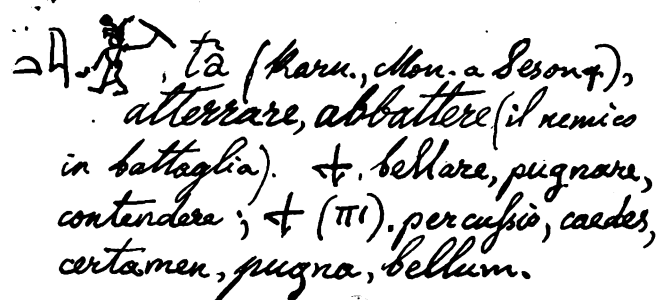 , tâ (Karn., Mon. a Sesonq),
atterrare, abbattere (il nemico
in battaglia). ϯ. bellare, pugnare,
contendere; ϯ (ⲡⲓ). percussio, caedes,
certamen, pugna, bellum.